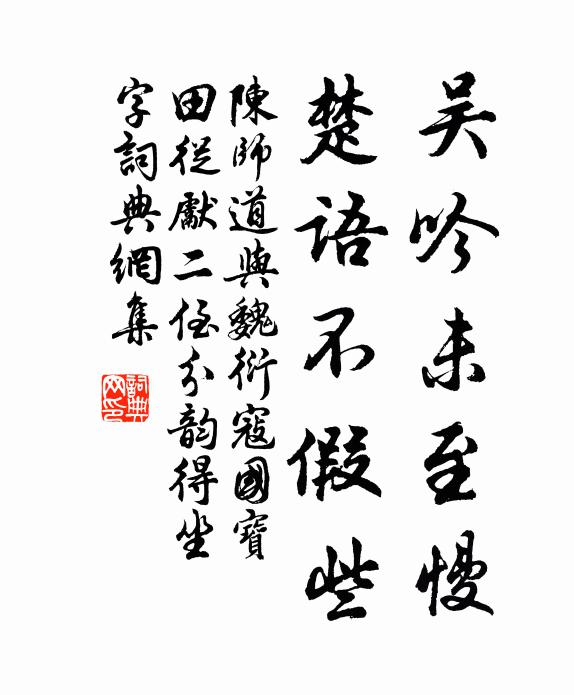 吴吟未至慢
楚語不假些
陳師道與魏衍寇國寶
田從獻二侄分韵得坐
字詞典網集
詞典网印